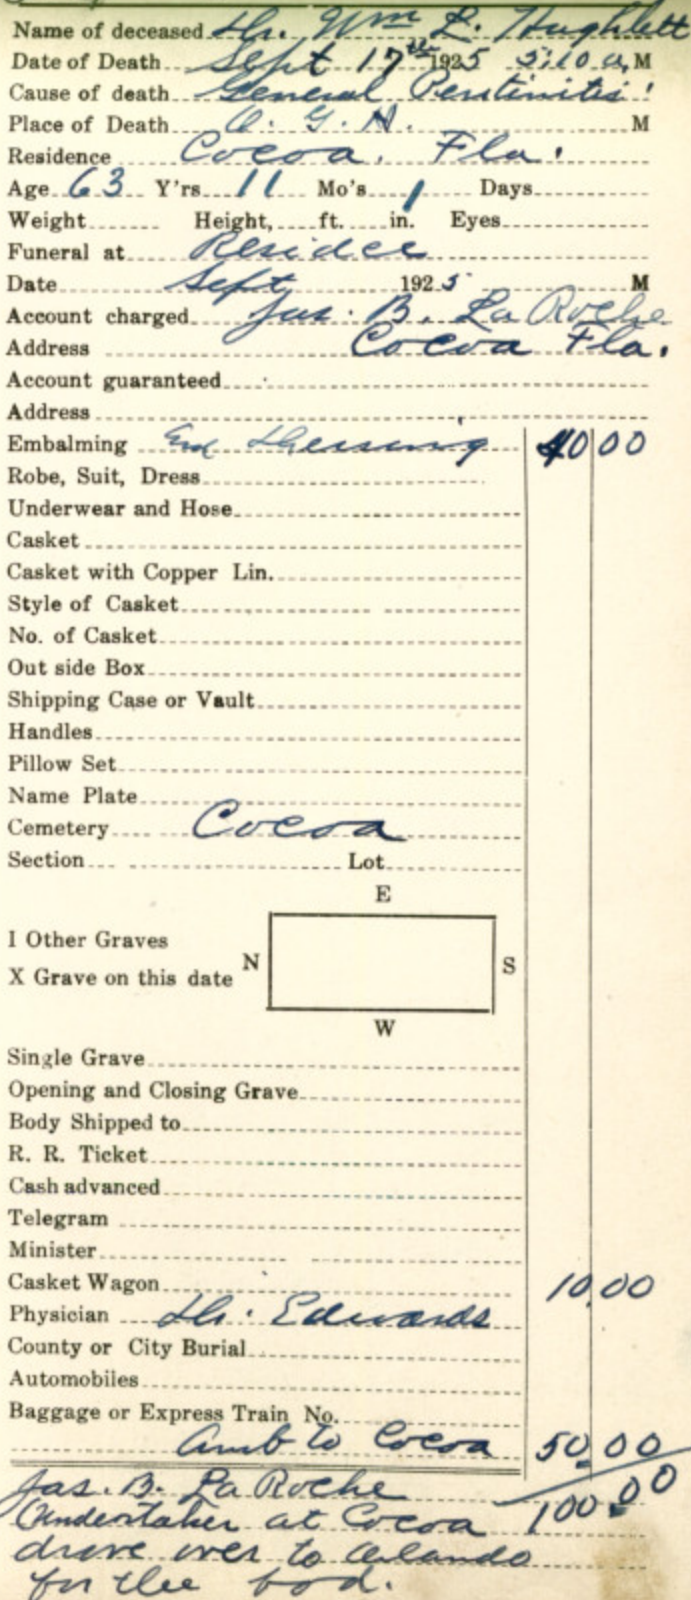 Name of deceased Dr. Wm L. Hughlett
Date of Death Sept 17th 1925 5:10 a, M
Cause of death General Peritinitis
Place of Death O. G. H. M
Residence Cocoa, Fla.
Age 63 Y'rs 11 Mo's 1 Days
Weight Height, ft. in. Eyes
Funeral at Residee
Date Sept 1925 M
Account charged Jas. B. La Roche
Address Cocoa Fla.
Account guaranteed
Address
Embalming and Dressing 40 00
Robe, Suit, Dress
Underwear and Hose
Casket
Casket with Copper Lin.
Style of Casket
No. of Casket
Out side Box
Shipping Case or Vault
Handles
Pillow Set
Name Plate
Cemetery Cocoa
Section Lot
E
I Other Graves
N S
X Grave on this date
W
Single Grave
Opening and Closing Grave
Body Shipped to
R. R. Ticket
Cash advanced
Telegram
Minister
Casket Wagon 10.00
Physician Dr. Edwards
County or City Burial
Automobiles
Baggage or Express Train No.
Amb to Cocoa 50.00
Jas. B. La Roche
Undertaker at Cocoa 100.00
drove over to Orlando
for the bod.